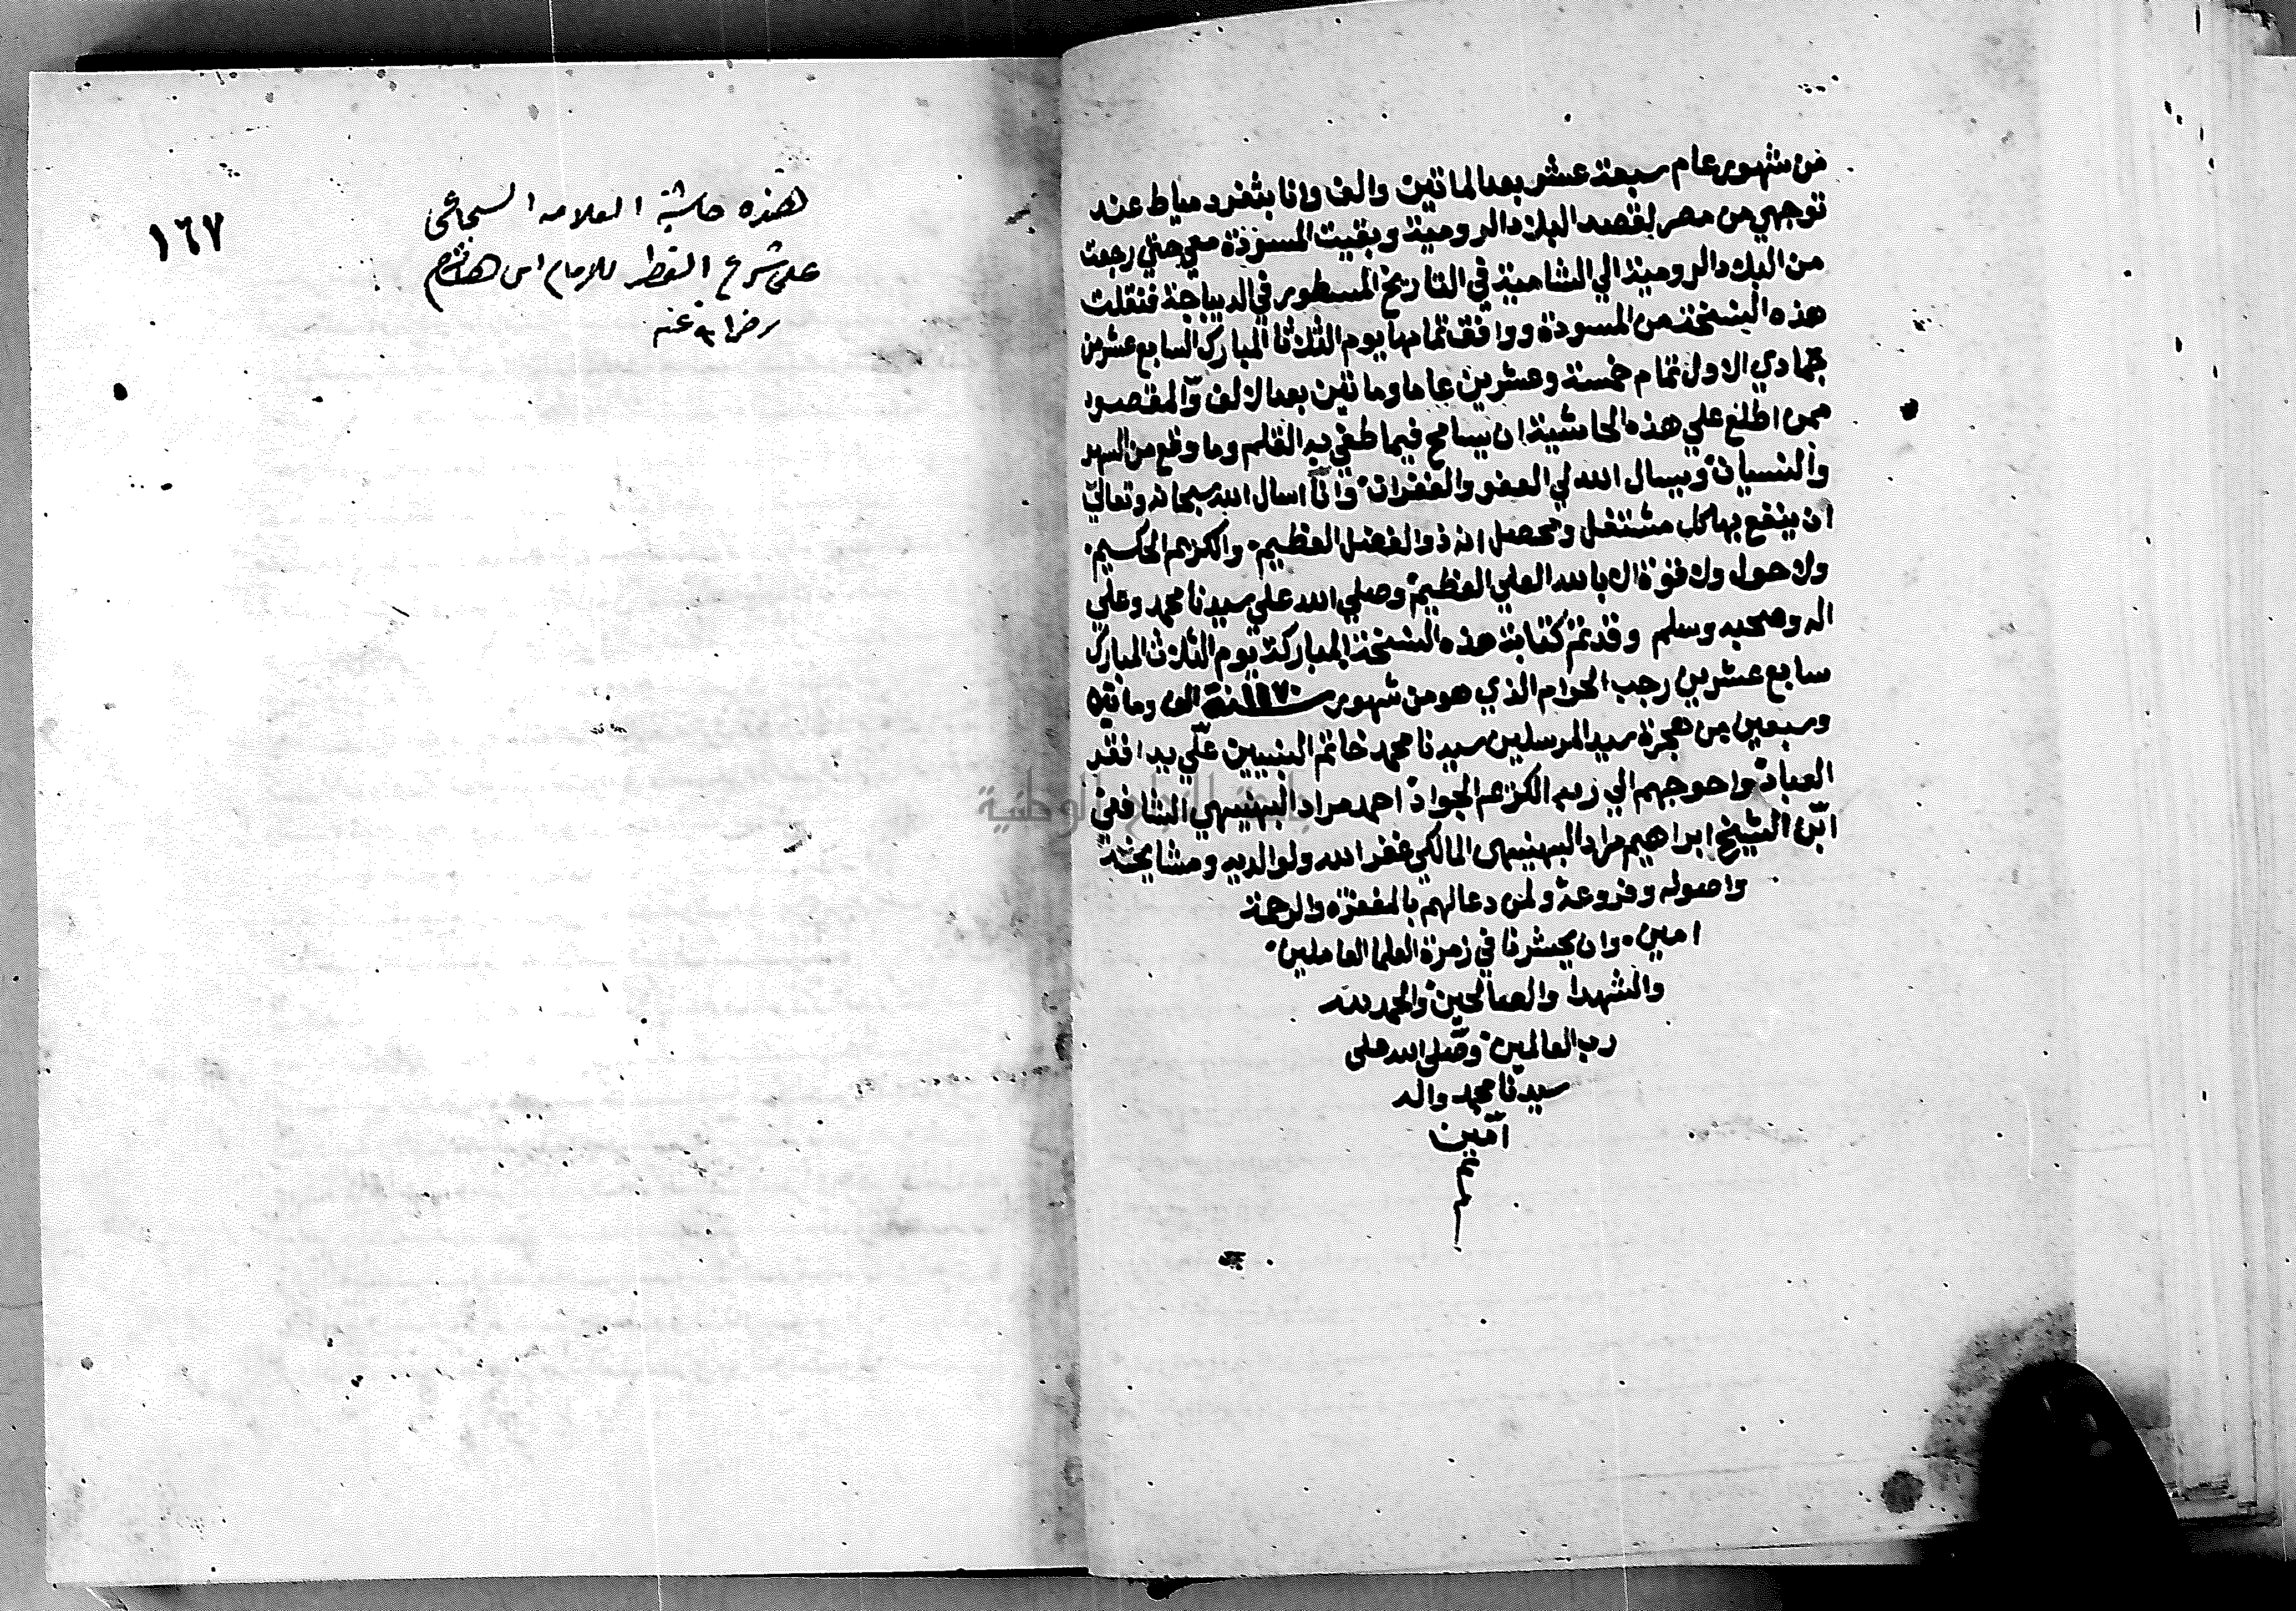 من شهور عام سبعة عشر بعد الماتين والف وانا بثغر دمياط عند
توجهي من مصر لقصد البلاد الرومية وبقيت المسودة معي حتي رجعت
من البلاد الرومية الي الشامية في التاريخ المسطور في الديباجة فنقلت
هذه النسخة من المسودة ووافق تمامها يوم الثلاثا المبارك السابع عشر من
جمادي الاول تمام خمسة وعشرين عاما وماتين بعد الالف والمقصود
ممن اطلع علي هذه الحاشية ان يسامح فيما طغي به القلم وما وقع من السهو
والنسيان ويسال الله لي العفو والغفران وانا اسال الله سبحانه وتعالي
ان ينفع بها كل مشتغل ومحصل انه ذو الفضل العظيم والكريم الحكيم
ولا حول ولا قوة الا بالله العلي العظيم وصلي الله علي سيدنا محمد وعلي
اله وصحبه وسلم وقد تم كتابة هذه النسخة المباركة يوم الثلاث المبارك
سابع عشرين رجب الحرام الذي هو من شهور سنة الف وماتين
وسبعين من هجرة سيد المرسلين سيدنا محمد خاتم النبيين علي يد افقر
العباد واحوجهم الي ربه الكريم الجواد احمد مراد البهنيهي الشافعي
ابن الشيخ ابراهيم مراد البهنيهي المالكي غفر الله ولوالديه ومشايخه
واصوله وفروعه ولمن دعا لهم بالمغفرة والرحمة
امين وان يحشرنا في زمرة العلما العاملين
والشهدا والصالحين والحمد لله
رب العالمين وصلى الله على
سيدنا محمد واله
امين
هذه حاشية العلامه السجاعى
على شرح القطر للامام ابن هشام
رضي الله عنه
١٦٧